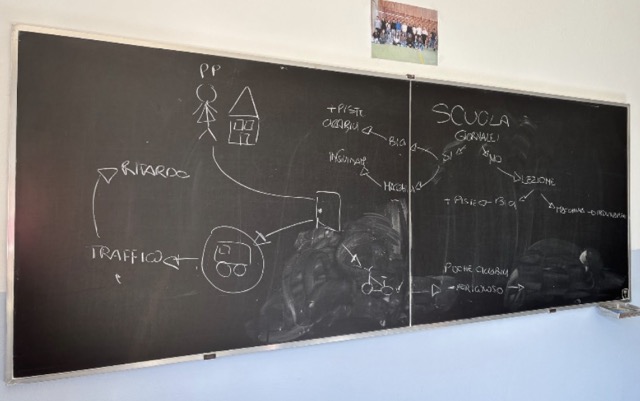 PP
+ PISTE
CICLABILI
BICI
SCUOLA
GIORNALE
SI
NO
LEZIONE
+ PISTE
BICI
RITARDO
TRAFFICO
POCHE CICLABILI
PERICOLOSO